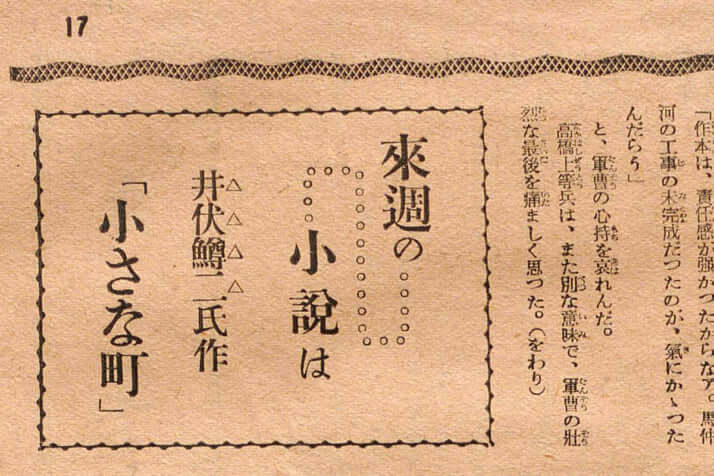 17
「作本は、責任感が强かつたからなア。馬仲
河の工事の未完成だつたのが、氣にかゝつた
んだらう」
と、軍曹の心持を哀れんだ。
高橋上等兵は、また別な意味で、軍曹の壯
烈な最後を痛ましく思つた。（をわり）
來週の
小說は
井伏鱒二氏作
「小さな町」